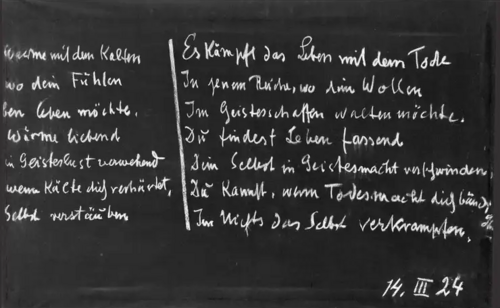 Wärme mit den Kalten
wo dein Fühlen
ben leben möchte.
Wärme liebend
in Geisterlust verwehend
wenn Kälte dich verhärtet,
Selbst verstäuben
Es kämpft das Leben mit dem Tode
In jenem Reiche, wo dein Wollen
Im Geistesschaffen walten möchte.
Du findest Leben fassend
Dein Selbst in Geistesmacht verschwinden;
Du kannst, wenn Todesmacht dich bändigt
Im Nichts das Selbst verkrampfen.
14. III 24